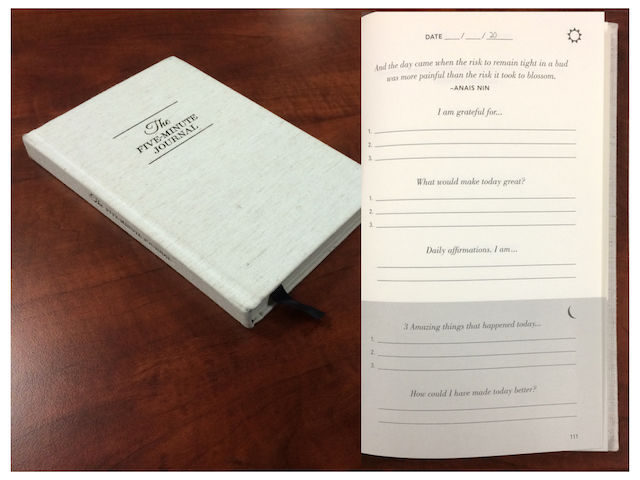 The
FIVE-MINUTE
JOURNAL
The FIVE-MINUTE JOURNAL
DATE ___/___/_20__
And the day came when the risk to remain tight in a bud
was more painful than the risk it took to blossom.
–ANAIS NIN
I am grateful for...
1.
2.
3.
What would make today great?
1.
2.
3.
Daily affirmations. I am...
3 Amazing things that happened today...
1.
2.
3.
How could I have made today better?
111